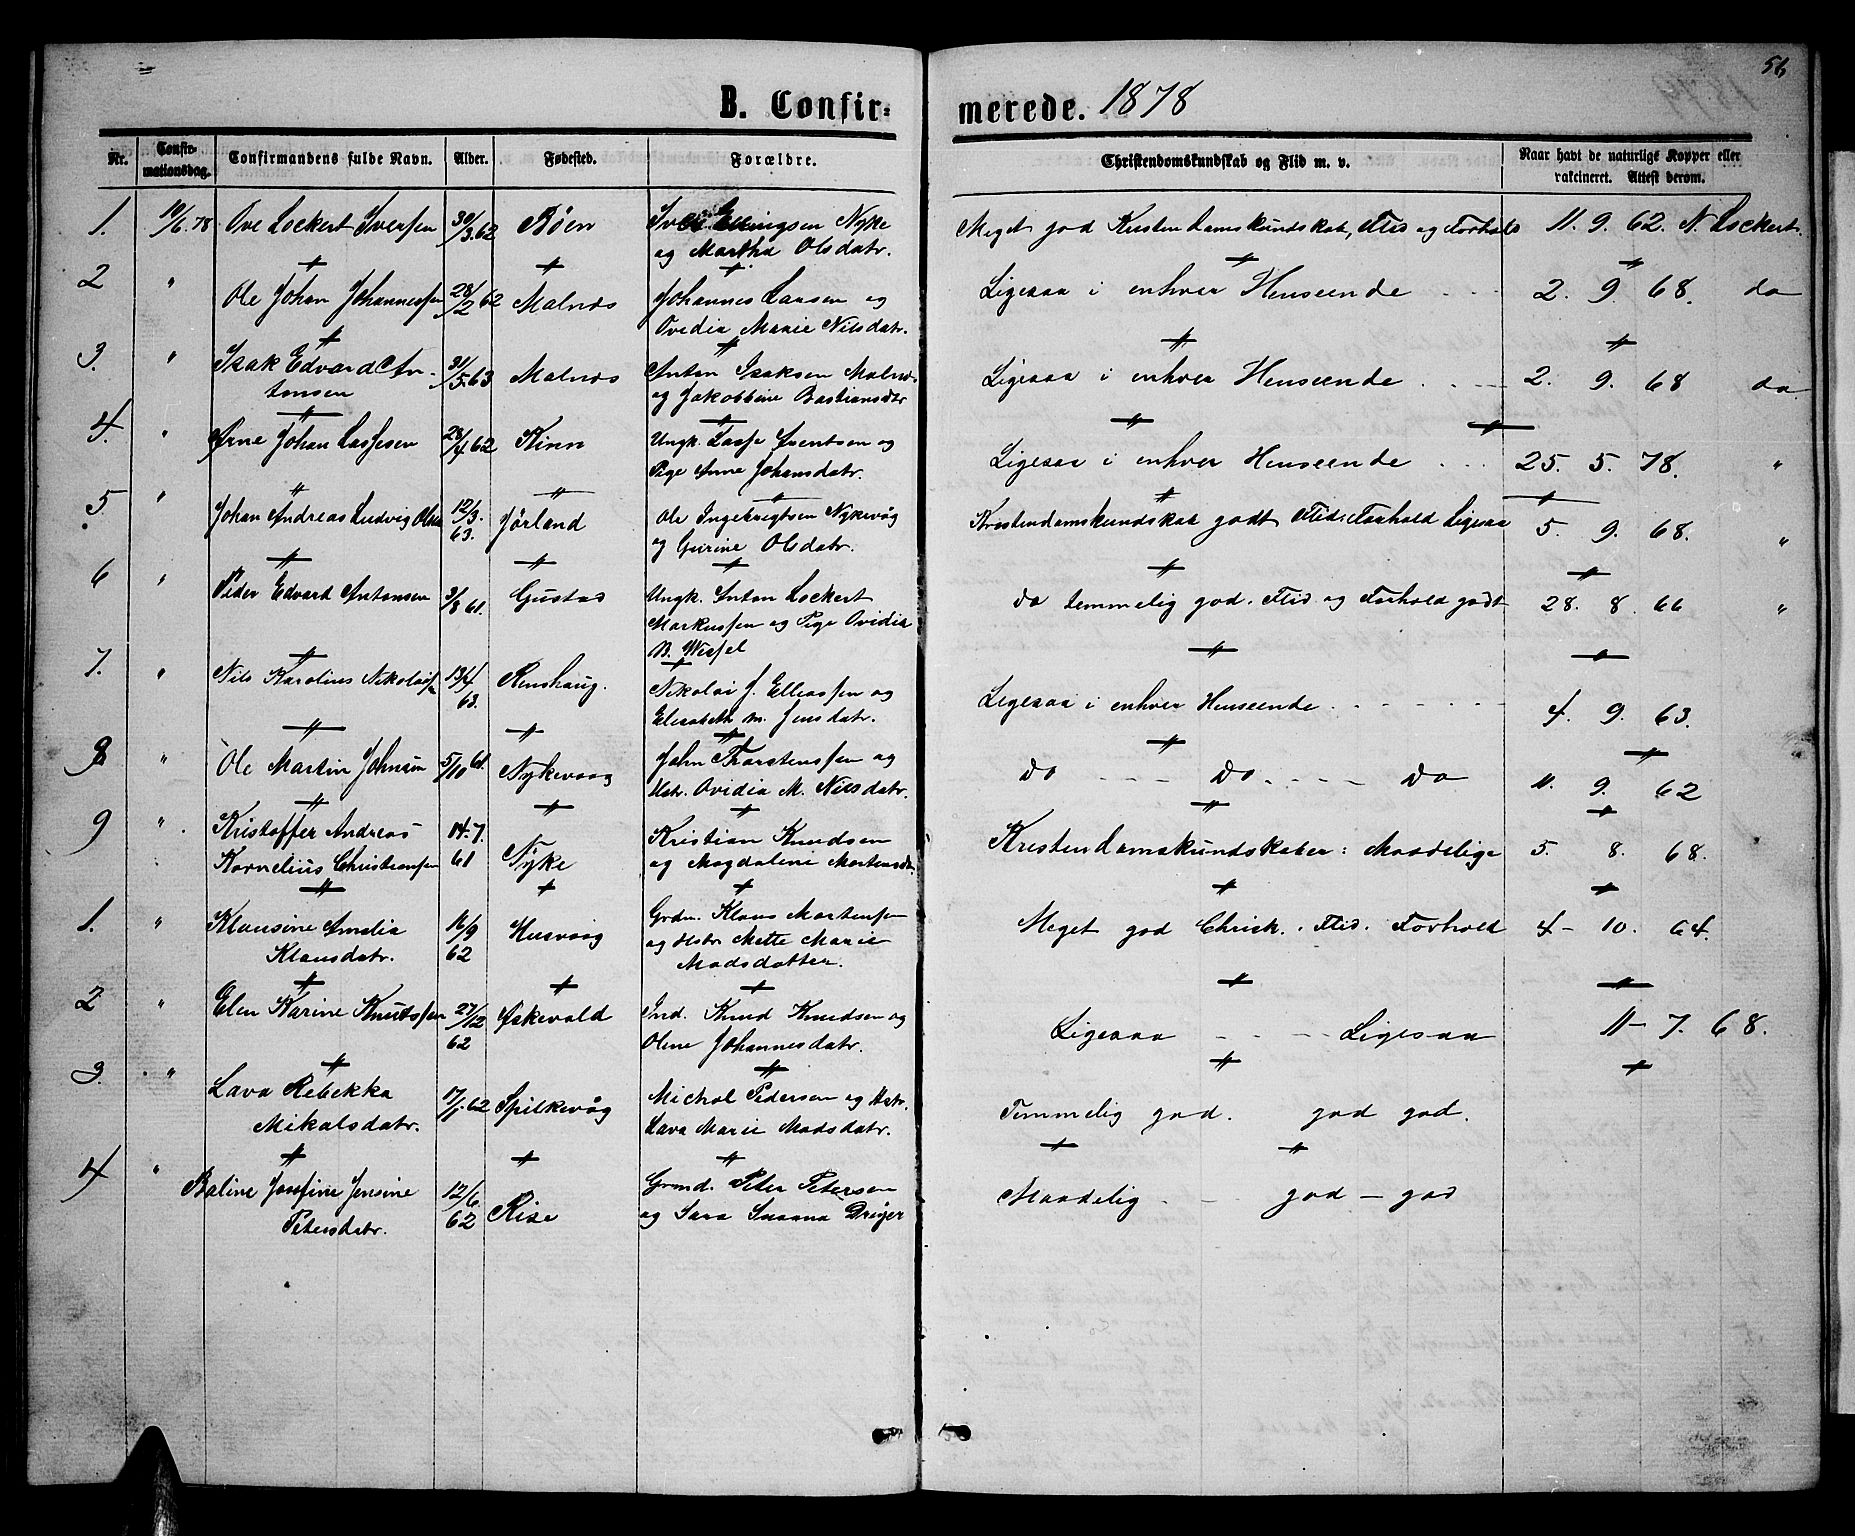 56
B. Confir-merede. 1878
Nr. Confir-mationsdag. Confirmandens fulde Navn. Alder. Fødested. Forældre. Christendomskundskab og Flid m. v. Naar havt de naturlige Kopper eller vakcineret. Attest derom.
1. 10/6.78 Ove Lockert Iversen 30/3.62 Bøen Iver Ellingsen Nyke Meget god Kristendomskundskab, Flid og Forhold 11. 9. 62. N. Lockert.
og Martha Olsdatr.
2 " Ole Johan Johannessen 28/2 62 Malnæs Johannes Larsen og Ligesaa i enhver Henseende 2. 9. 68. do
Ovidia Marie Nilsdatr.
3. " Isak Edvard An- 31/5.63 Malnæs Anton Isaksen Malnæs Ligesaa i enhver Henseende 2. 9. 68 do
tonsen og Jakobbine Bastiansdtr
4. " Arne Johan Lassesen 28/4 62 Ungk. Lasse Sventsen og Ligesaa i enhver Henseende 25. 5. 78. "
Pige Anne Johansdatr.
5 " Johan Andreas Ludvig Olsen 12/3. Jørland Ole Ingebrigtsen Nykevåg Kristendomskundskab godt Flid: Forhold Ligesaa 5. 9. 68. "
63. og Gurine Olsdatr.
6 " Peder Edvard Antonsen 3/8 61. Gustad Ungk. Anton Lockert do temmelig god. Flid og Forhold godt 28. 8. 66 "
Markussen og Pige Ovidia
B. Wessel
7. " Nils Karolius Nikolaisen 13/4 Renshaug. Nikolai J. Elleassen og Ligesaa i enhver Henseende 4. 9. 63.
63. Elisabeth M. Jensdatr.
8 " Ole Martin Johnsen 5/10 61. Nykevaag John Thorstenssen og do do do 11. 9. 62
Hstr. Ovidia M. Nilsdatr.
9 " Kristoffer Andreas 14.7. Nyke Kristian Knudsen Kristendomskundskaber: Maadelige 5. 8. 68.
Kornelius Christiansen 61 og Magdalene Mortensdtr
1. " Klausine Amalia 16/9 Husvaag Grdm. Klaus Mortensen Meget god Christk. Flid. Forhold 4 - 10. 64.
Klausdatr. 62 og Hstr Mette Marie
Madsdatter.
2 " Elen Karine Knutssen 27/12 Askevold Ind. Knud Knudsen og Ligesaa - - - Ligesaa 11 - 7. 68.
62 Oline Johannesdatr.
3. " Lava Rebekka 17/1.62 Spilkevåg Michal Pedersen og Hstr. Temmelig god. god god.
Mikalsdatr. Lava Marie Madsdatr.
4 " Baline Josefine Jensine 12/6. Rise Grmd. Peder Petersen Maadelig - god - god
Petersdatr. 62 og Sara Susanna Dreyer